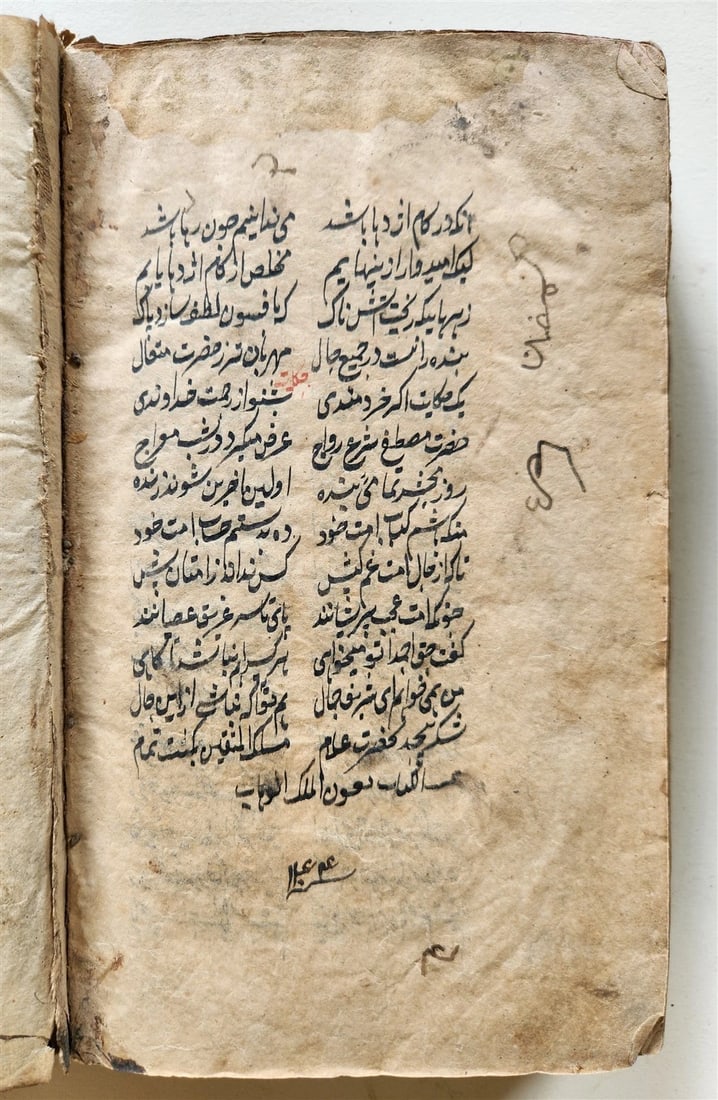 آنکه در کام اژدها باشد می ندانیم چون رها باشد
لیک امیدوار ازینهایم مخلص از کام اژدها یابیم
زهرهاییکه ریخت آتش ناک که بافسون لطف سازد پاک
بنده را نیست در جمیع حال مهربان تر ز حضرت متعال
حکایت
یک حکایت اگر خردمندی بشنو از رحمت خداوندی
حضرت مصطفی شرع رواج عرض میکرد در شب معراج
روز محشر تمامی بنده اولین و آخرین شوند زنده
منکه باشم کباب امت خود ده بدستم حساب امت خود
تا که از حال امت غم کیش کس نداند ز امتان پیش
چونکه امت عجب پریشانند پای تا سر غریق عصیانند
گفت حق واحدا تو میخواهی هر کسرا نباشد آگاهی
من نمی خواهم ای شریف جمال هم تو آگه نباشی از این حال
شکر بیحد که حضرت علام مسلک المتقین بگشت تمام
تمت الکتاب بعون الملک الوهاب